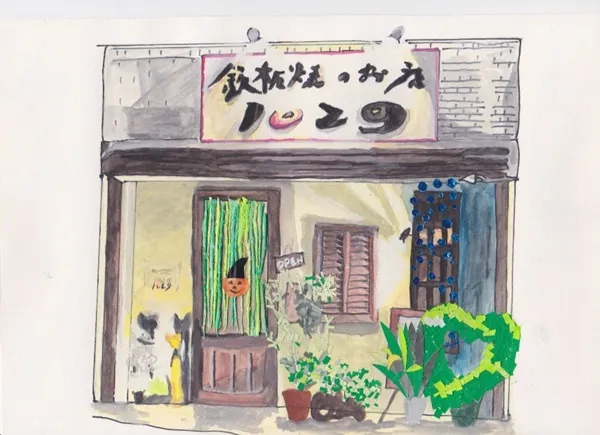 鉄板焼のお店
1029
OPEN
1029